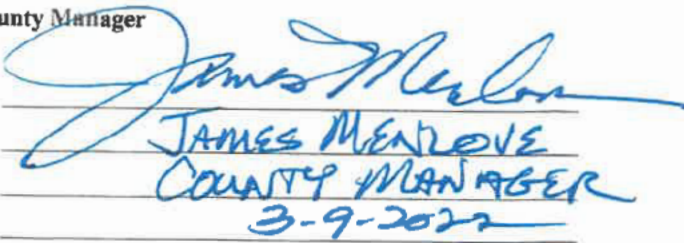 unty Manager
James Menlove
JAMES MENLOVE
COUNTY MANAGER
3-9-2022